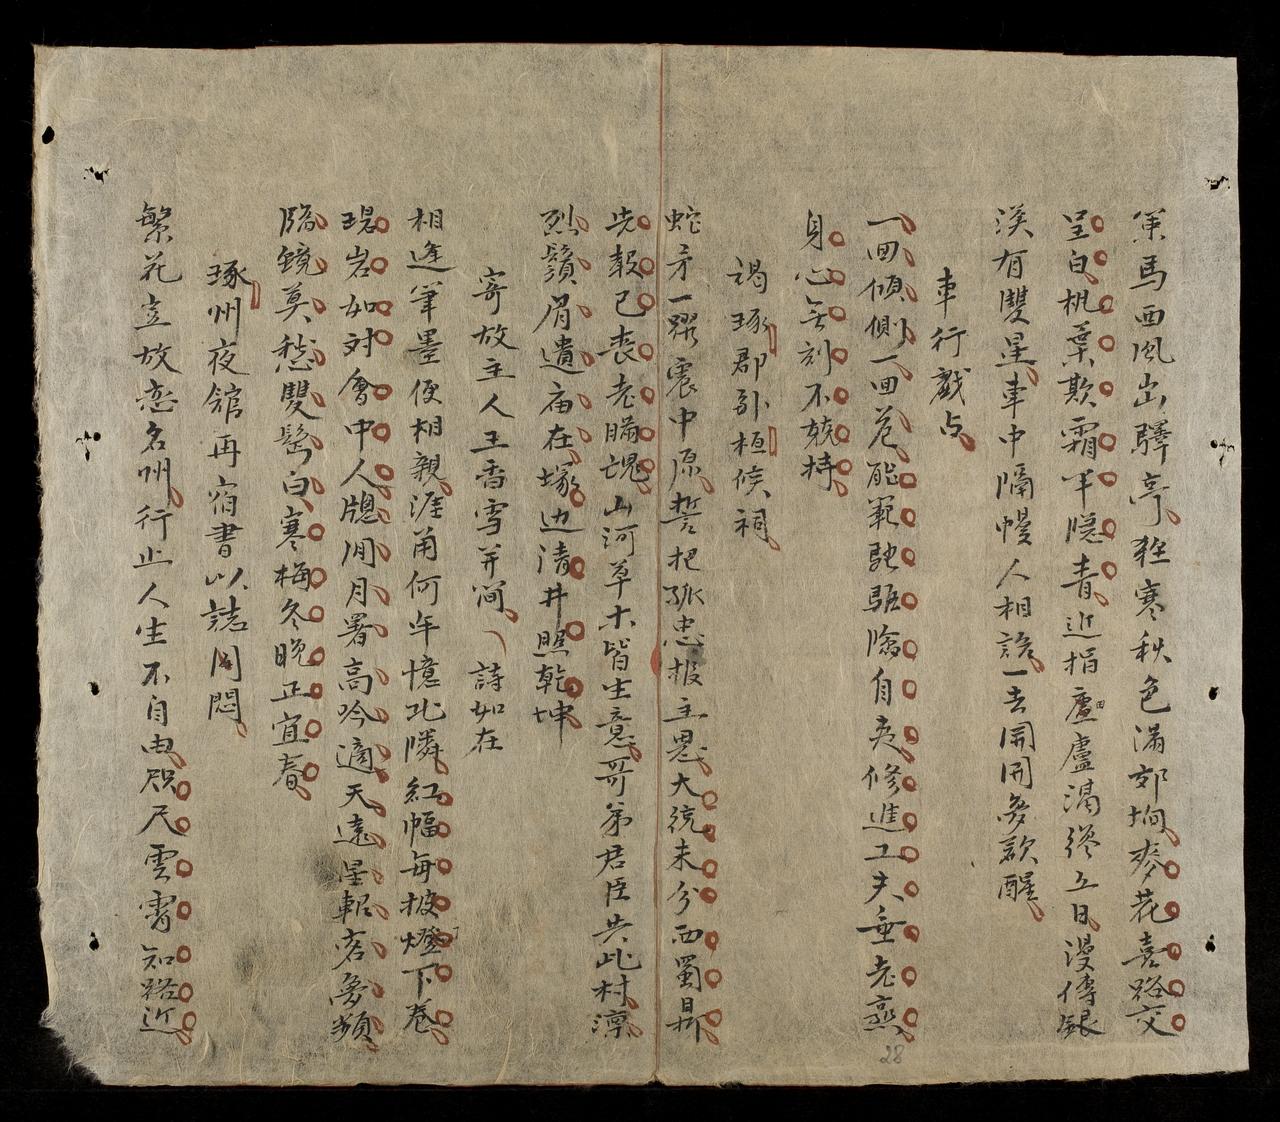 馬西風出驛亭 寒秋色滿郊坰 麥花喜路交
呈白桃葉欺霜半隱青 近指蘆廬 日漫傳銀
漢有雙星 車中隔幔人相詭 一去開開夢欲醒
車行戲占
一回傾側一回危 能範馳驅險自夷 修進工夫垂老燕
身心無刻不兢持
謁琢郡張桓侯祠
蛇矛一躍震中原 誓把孤忠报主恩 大統未分西蜀鼎
先聲已喪老瞞魂 山河草木皆生意 哥弟君臣共此村 凛
烈鬚眉遺庙在 塚边清井照乾坤
寄故主人王香雪并簡 詩如在
相逢筆墨便相親 涯角何年憶北隣 紅幅每披燈下卷
瑥岩如对會中人 牕間月署高吟適 天遠星軺客夢頻
臨鏡莫愁雙髩白 寒梅冬晚正宜春
琢州夜舘再宿書以誌閑悶
繁花豈放恋名州 行止人生不自由 咫尺雲霄知路近
28